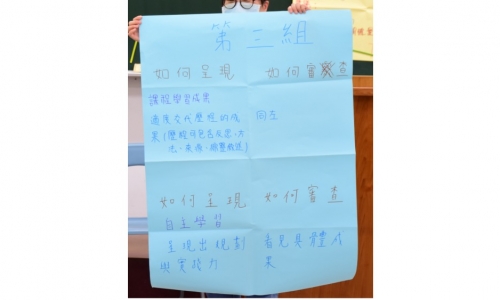 第三組
如何呈現 如何審查
課程學習成果
適度交代歷程的成 同左
果(歷程何包含反思、方
法、來源、
如何呈現 如何審查
自主學習
呈現出規劃 看見具體成
與實踐力 果